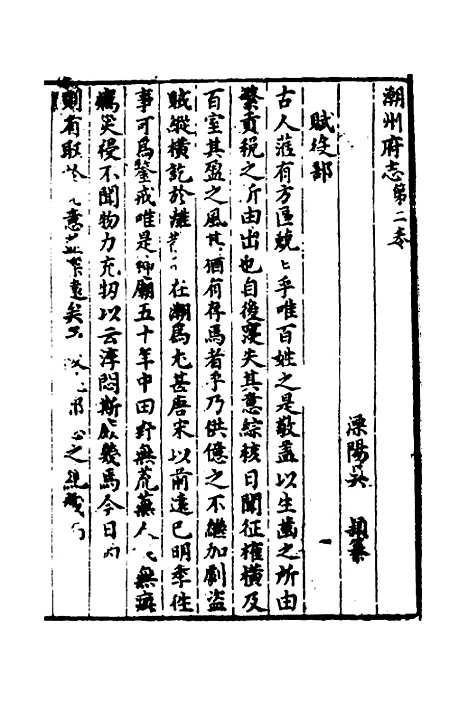 潮州府志第二卷
溧陽吳 穎纂
賦役部
古人蒞有方區兢兢乎唯百姓之是敬蓋以生齒之所由
繁貢稅之所由出也自後寖失其意綜核日聞征榷橫及
百室其盈之風其猶有存焉者乎乃供億之不繼加剽盜
賊縱橫訖於離 在潮為尤甚唐宋以前遠已明季往
事可為鑒戒唯是神廟五十年中田野無荒蕪人 無癘
災侵不聞物力充牣以云淳悶斯庶幾焉今日
則有取於 意 遠矣 之